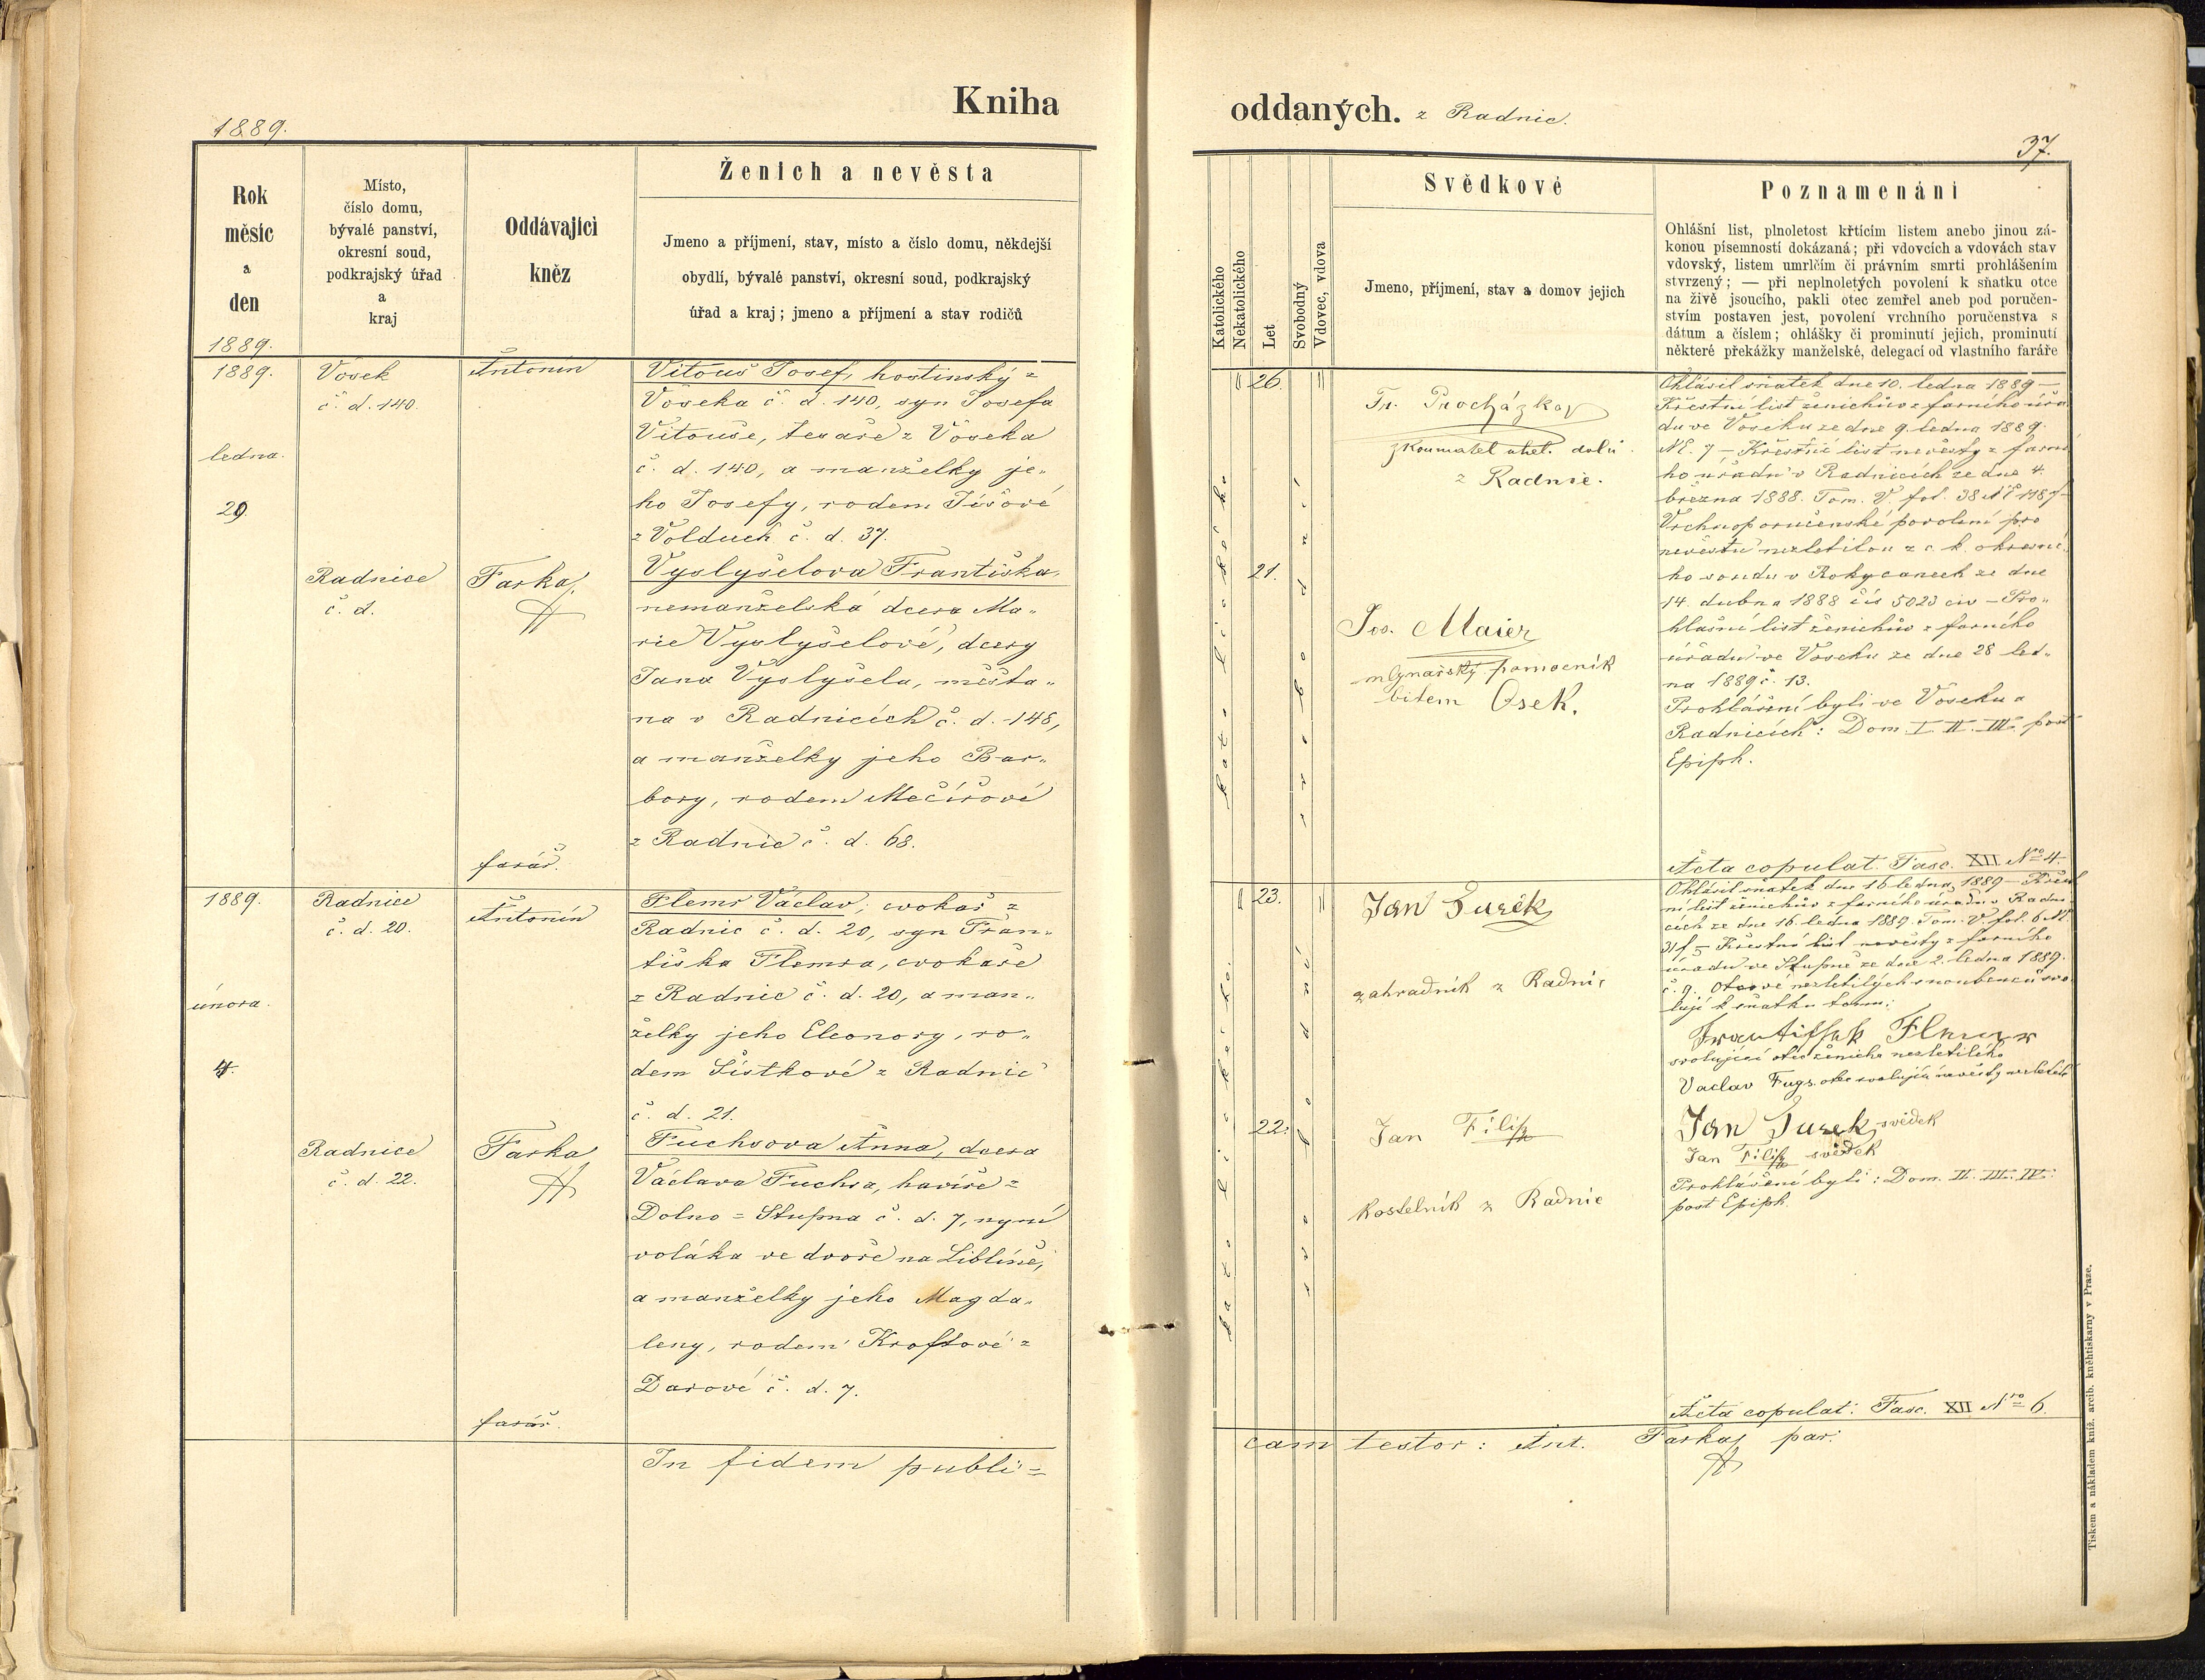 Kniha
1889.
Rok
měsíc
a
den
1889.
Místo,
číslo domu,
bývalé panství,
okresní soud,
podkrajský úřad
a
kraj
Oddávající
kněz
Ženich a nevěsta
Jmeno a příjmení, stav, místo a číslo domu, někdejší
obydlí, bývalé panství, okresní soud, podkrajský
úřad a kraj; jmeno a příjmení a stav rodičů
1889.
ledna.
29.
Vosek
č. d. 140.
Radnice
č. d.
Antonín
Farka,
farář.
Vitouš Josef, hostinský z
Voseka č. d. 140, syn Josefa
Vitouše, tesaře z Voseka
č. d. 140, a manželky je„
ho Josefy, rodem Jíšové
z Volduch č. d. 37.
Vyslyšelova Františka,
nemanželská dcera Ma„
rie Vyslyšelové, dcery
Jana Vyslyšela, měšťa„
na v Radnicích č. d. 148,
a manželky jeho Bar„
bory, rodem Mečířové
z Radnic č. d. 68.
1889.
února.
4.
Radnice
č. d. 20.
Radnice
č. d. 22.
Antonín
Farka
farář.
Flemr Václav, cvokař z
Radnic č. d. 20, syn Fran„
tiška Flemra, cvokaře
z Radnic č. d. 20, a man„
želky jeho Eleonory, ro„
dem Šístkové z Radnic
č. d. 21.
Fuchsova Anna, dcera
Václava Fuchsa, havíře z
Dolno = Stupna č. d. 7, nyní
voláka ve dvoře na Liblíně,
a manželky jeho Magda„
leny, rodem Kroftové z
Darové č. d. 7.
In fidem publi=
oddaných. z Radnic.
37.
Katolického
Nekatolického
Let
Svobodný
Vdovec, vdova
Svědkové
Jmeno, příjmení, stav a domov jejich
Poznamenání
Ohlášní list, plnoletost křtícím listem anebo jinou zá-
konou písemností dokázaná; při vdovcích a vdovách stav
vdovský, listem umrlčím či právním smrti prohlášením
stvrzený; — při neplnoletých povolení k sňatku otce
na živě jsoucího, pakli otec zemřel aneb pod poručen-
stvím postaven jest, povolení vrchního poručenstva s
dátum a číslem; ohlášky či prominutí jejich, prominutí
některé překážky manželské, delegací od vlastního faráře
katolického
26.
21.
svobodní
Fr. Procházka
zkoumatel uhel. dolů
z Radnic.
Jos. Maier
mlynařský pomocník
bitem Osek.
Ohlásil sňatek dne 10. ledna 1889 —
Křestní list ženichův z farního úřa
du ve Voseku ze dne 9. ledna 1889.
Nč. 7 — Křestní list nevěsty z farní
ho úřadu v Radnicích ze dne 4.
března 1888. Tom. V. fol. 38
Vrchnoporučenské povolení pro
nevěstu nezletilou z c. k. okresní„
ho soudu v Rokycanech ze dne
14. dubna 1888 čís 5023 civ — Pro„
hlašní list ženichův z farního
úřadu ve Voseku ze dne 28 led„
na 1889 č. 13.
Prohlášeni byli ve Voseku a
Radnicích: Dom. I. II. III. post
Epiph.
Acta copulat. Fasc. XII. No 4.
katolického.
23.
22.
svobodní
Jan Turek
zahradník z Radnic
Jan Filip
kostelník z Radnic
Ohlásil sňatek dne 16 ledna 1889 — Křest
ní list ženichův z farního úřadu v Radni
cích ze dne 16. ledna 1889. Tom. V. fol. 6
Křestní list nevěsty z farního
úřadu ve Stupně ze dne 2. ledna 1889.
č. 9. Otcové nezletilých snoubenců svo
lují k sňatku tomu:
Frantissek Flemr
svolující otec ženicha nezletilého
Vaclav Fugs. otec svolujíci nevěsty nezletilé
Jan Turek svědek
Jan Filip svědek
Prohlášeni byli: Dom. II. III. IV.
post Epiph.
Acta copulat. Fasc. XII No 6.
cam testor: Ant. Farka, par.
Tiskem a nákladem kníž. arcib. kněhtiskarny v Praze.